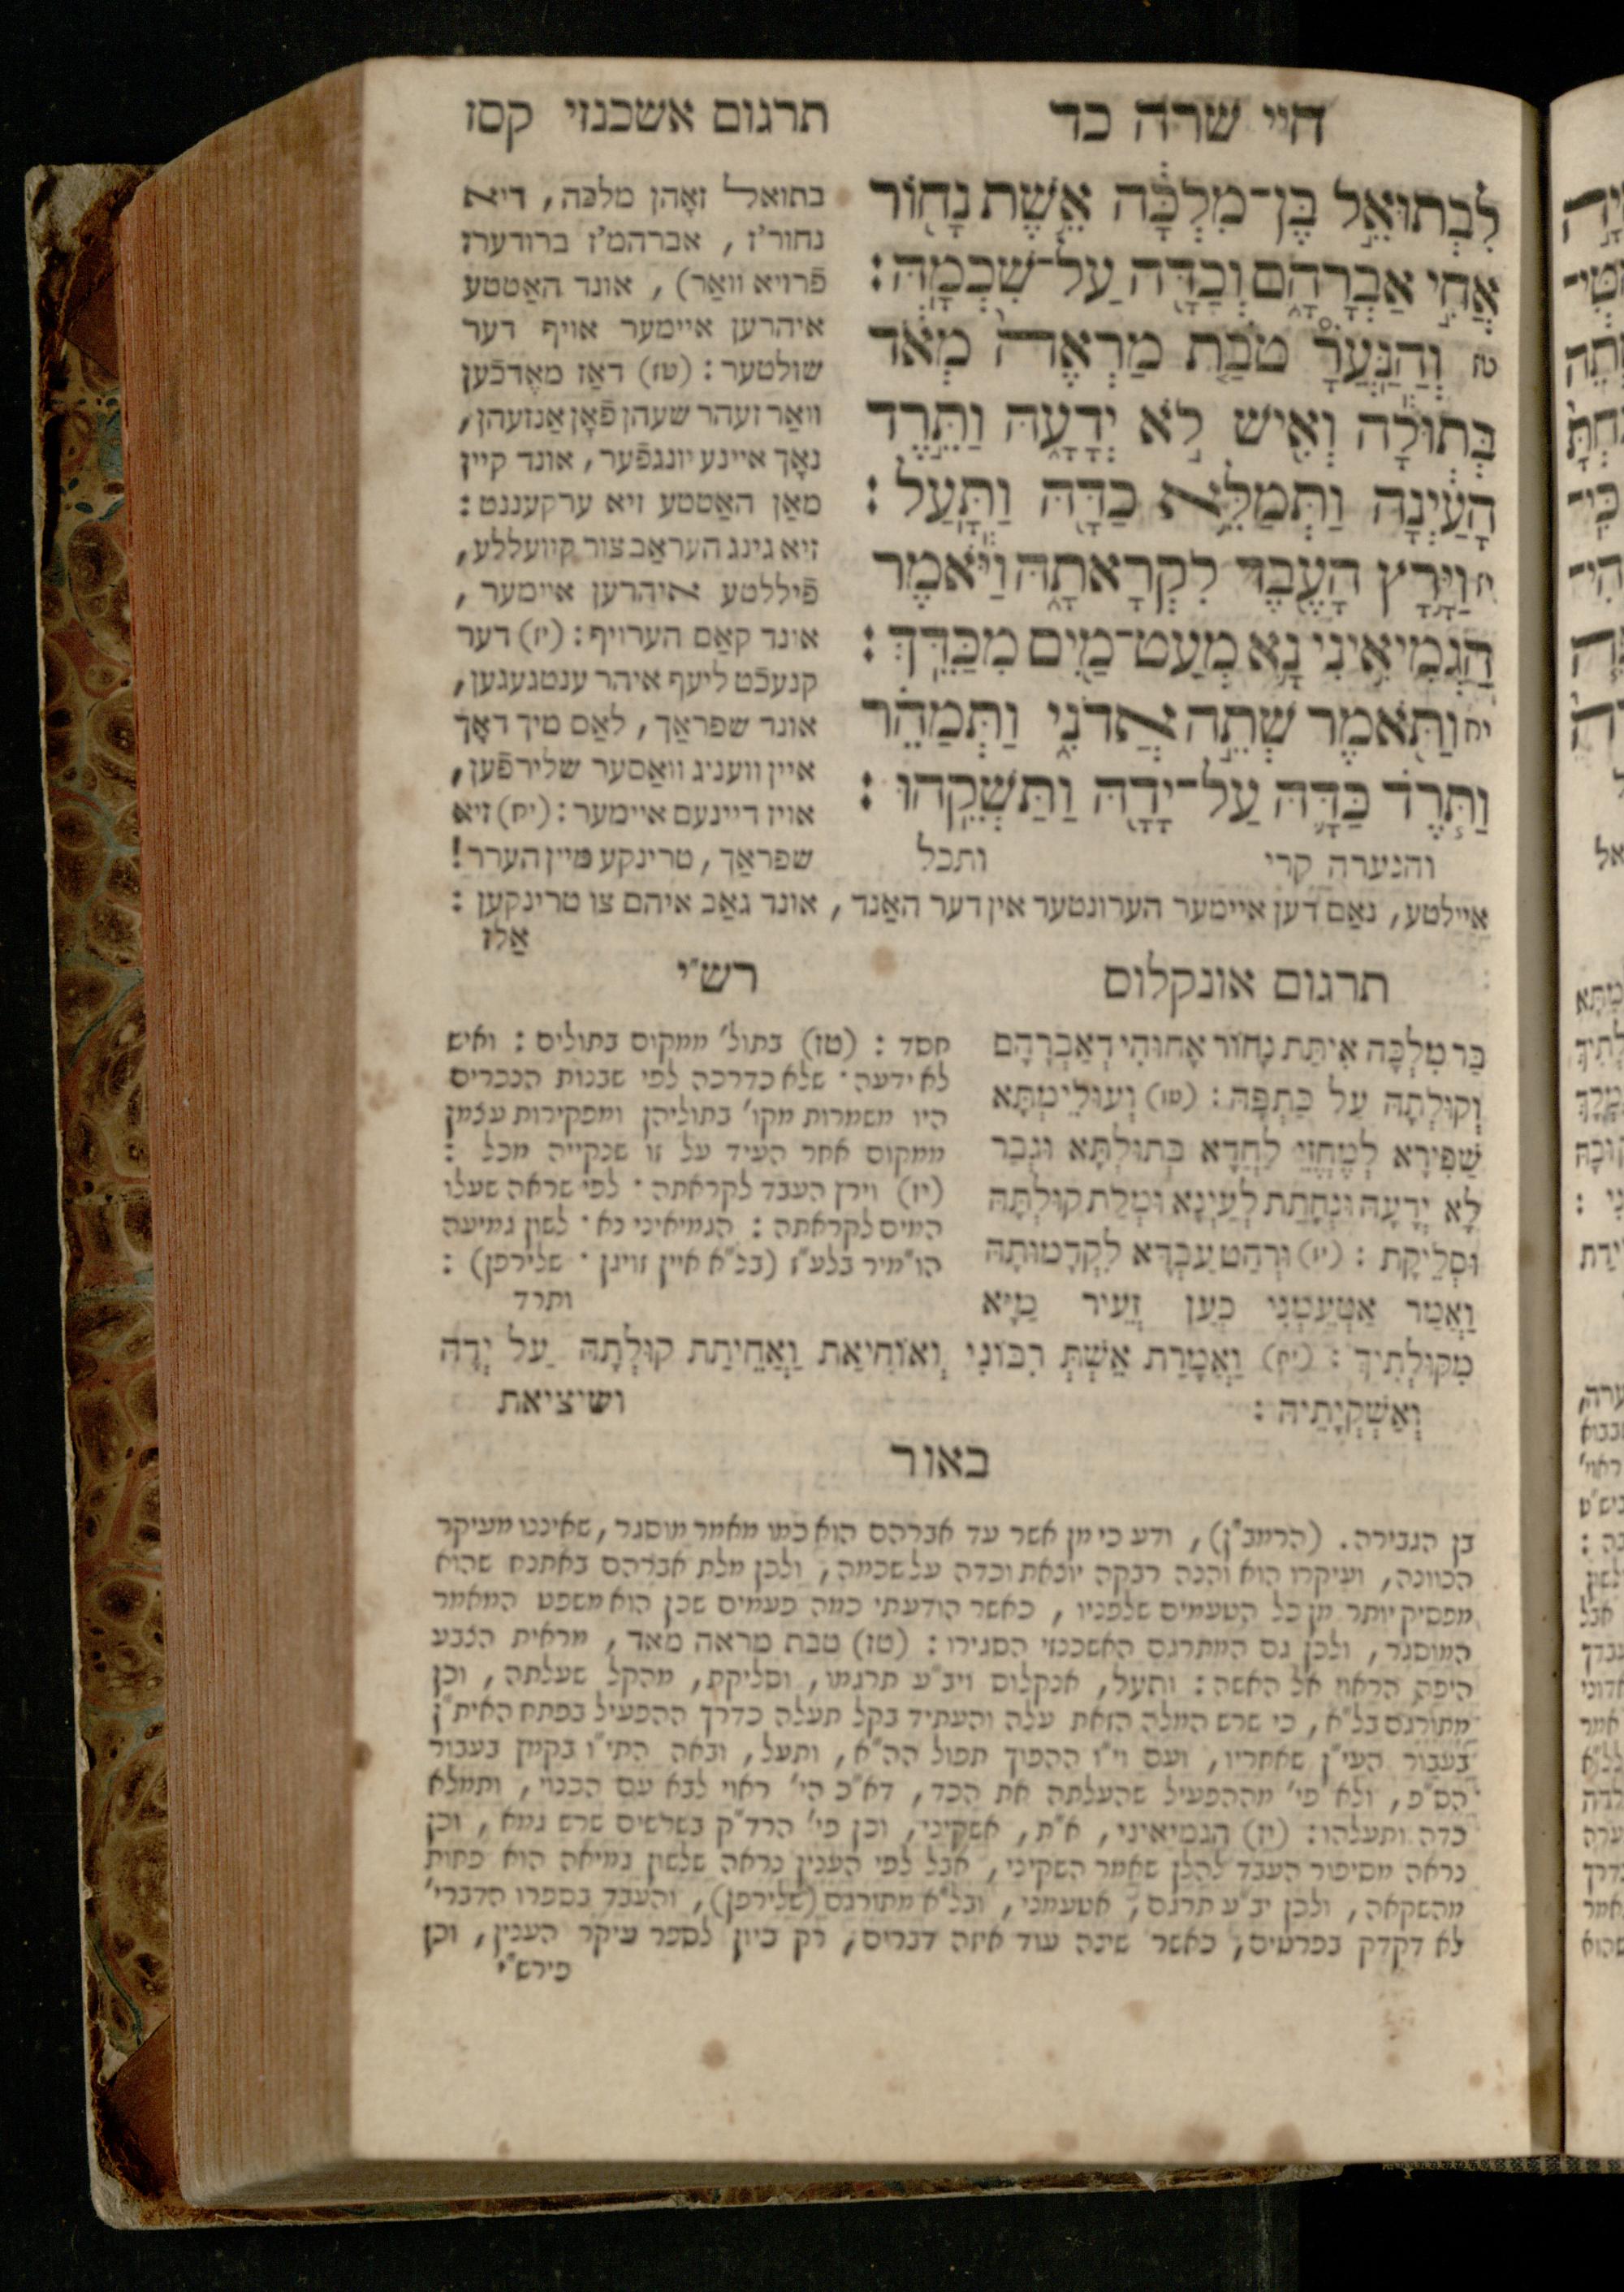 חיי שרה כד
תרגום אשכנזי קסז
לִבְתוּאֵל֙ בֶּן־מִלְכָּ֔ה אֵ֥שֶׁת נָח֖וֹר
אֲחִ֣י אַבְרָהָ֑ם וְכַדָּ֖הּ עַל־שִׁכְמָֽהּ׃
טז וְהַֽנַּעֲרָ֗ טֹבַ֤ת מַרְאֶה֙ מְאֹ֔ד
בְּתוּלָ֕ה וְאִ֖ישׁ לֹ֣א יְדָעָ֑הּ וַתֵּ֣רֶד
הָעַ֔יְנָה וַתְּמַלֵּ֥א כַדָּ֖הּ וַתָּֽעַל׃
יז וַיָּ֥רׇץ הָעֶ֖בֶד לִקְרָאתָ֑הּ וַיֹּ֕אמֶר
הַגְמִיאִ֥ינִי נָ֛א מְעַט־מַ֖יִם מִכַּדֵּֽךְ׃
יח וַתֹּ֖אמֶר שְׁתֵ֣ה אֲדֹנִ֑י וַתְּמַהֵ֗ר
וַתֹּ֧רֶד כַּדָּ֛הּ עַל־יָדָ֖הּ וַתַּשְׁקֵֽהוּ׃
והנערה קרי
ותכל
בתואל זאָהן מלכה, דיא
נחור'ז, אברהם'ז ברודערז
פֿרויא וואַר), אונד האַטטע
איהרען איימער אויף דער
שולטער: (טז) דאַז מאֶדכֿען
וואַר זעהר שעהן פֿאָן אַנזעהן,
נאָך איינע יונגפֿער, אונד קיין
מאַן האַטטע זיא ערקעננט:
זיא גינג העראַב צור קוועללע,
פֿיללטע איהרען איימער,
אונד קאַם הערויף: (יז) דער
קנעכֿט ליעף איהר ענטגעגען,
אונד שפראַך, לאַס מיך דאָך
איין ווענינ וואַסער שלירפֿען,
אויז דיינעם איימער: (יח) זיא
שפראַך, טרינקע מיין הערר!
איילטע, נאַם דען איימער הערונטער אין דער האַנד, אונד גאַב איהם צו טרינקען:
אַלז
תרגום אונקלוס
בַּר מִלְכָּה אִיתַּת נָחוֹר אֲחוּהִי דְאַבְרָהָם
וְקוּלְתָהּ עַל כַּתְפָּהּ: (טז) וְעוּלֵימְתָּא
שַׁפִּירָא לְמֶחֱזֵי לַחֲדָא בְּתוּלְתָּא וּגְבַר
לָא יְדָעָהּ וּנְחָתַת לְעֵינָא וּמְלַת קוּלְתָּהּ
וּסְלֵיקַת: (יז) וּרְהַט עַבְדָּא לִקְדָמוּתָהּ
וַאֲמַר אַטְעֵמִינִי כְעַן זְעֵיר מַיָּא
מִקּוּלְתִיךְ: (יח) וַאֲמָרַת אֵשְׁתְּ רִבּוֹנִי וְאוֹחִיאַת וַאֲחֵיתַת קוּלְתָהּ עַל יְדָהּ
וְאַשְׁקְיָתֵיהּ:
ושיציאת
רש"י
חסד: (טז) בתול' ממקום בתולים: ואיש
לא ידעה· שלא כדרכה לפי שבנות הנכרים
היו משמרות מקו' בתוליהן ומפקירות עצמן
ממקום אחר העיד על זו שנקייה מכל:
(יז) וירץ העבד לקראתה· לפי שראה שעלו
המים לקראתה: הגמיאיני נא· לשון גמיעה
הו"מיר בלע"ז (בל"א איין זויגן· שלירפן):
ותרד
באור
בן הגבירה. (הרמב"ן), ודע כי מן אשר עד אברהם הוא כמו מאמר מוסגר, שאיננו מעיקר
הכוונה, ועיקרו הוא והנה רבקה יוצאת וכדה על שכמה, ולכן מלת אברהם באתנח שהוא
מפסיק יותר מן כל הטעמים שלפניו, כאשר הודעתי כמה פעמים שכן הוא משפט המאמר
המוסגר, ולכן גם המתרגם האשכנזי הסגירו: (טז) טבת מראה מאד, מראית הצבע
היפה הראוי אל האשה: ותעל, אנקלוס ויב"ע תרגמו, וסליקת, מהקל שעלתה, וכן
מתורגם בל"א, כי שרש המלה הזאת עלה והעתיד בקל תעלה כדרך ההפעיל בפתח האית"ן
בעבור העי"ן שאחריו, ועם וי"ו ההפוך תפול הה"א, ותעל, ובאה התי"ו בקמץ בעבור
הס"פ, ולא פי' מההפעיל שהעלתה את הכד, דא"כ הי' ראוי לבא עם הכנוי, ותמלא
כדה ותעלהו: (יז) הגמיאיני, א"ת, אשקיני, וכן פי' הרד"ק בשרשים שרש גמא, וכן
נראה מסיפור העבד להלן שאמר השקיני, אבל לפי הענין נראה שלשון גמיאה הוא פחות
מהשקאה, ולכן יב"ע תרגם, אטעמני, ובל"א מתורגם (שלירפן), והעבד בספרו הדברי'
לא דקדק בפרטים, כאשר שינה עוד איזה דברים, רק כיון לספר עיקר הענין, וכן
פירש"י